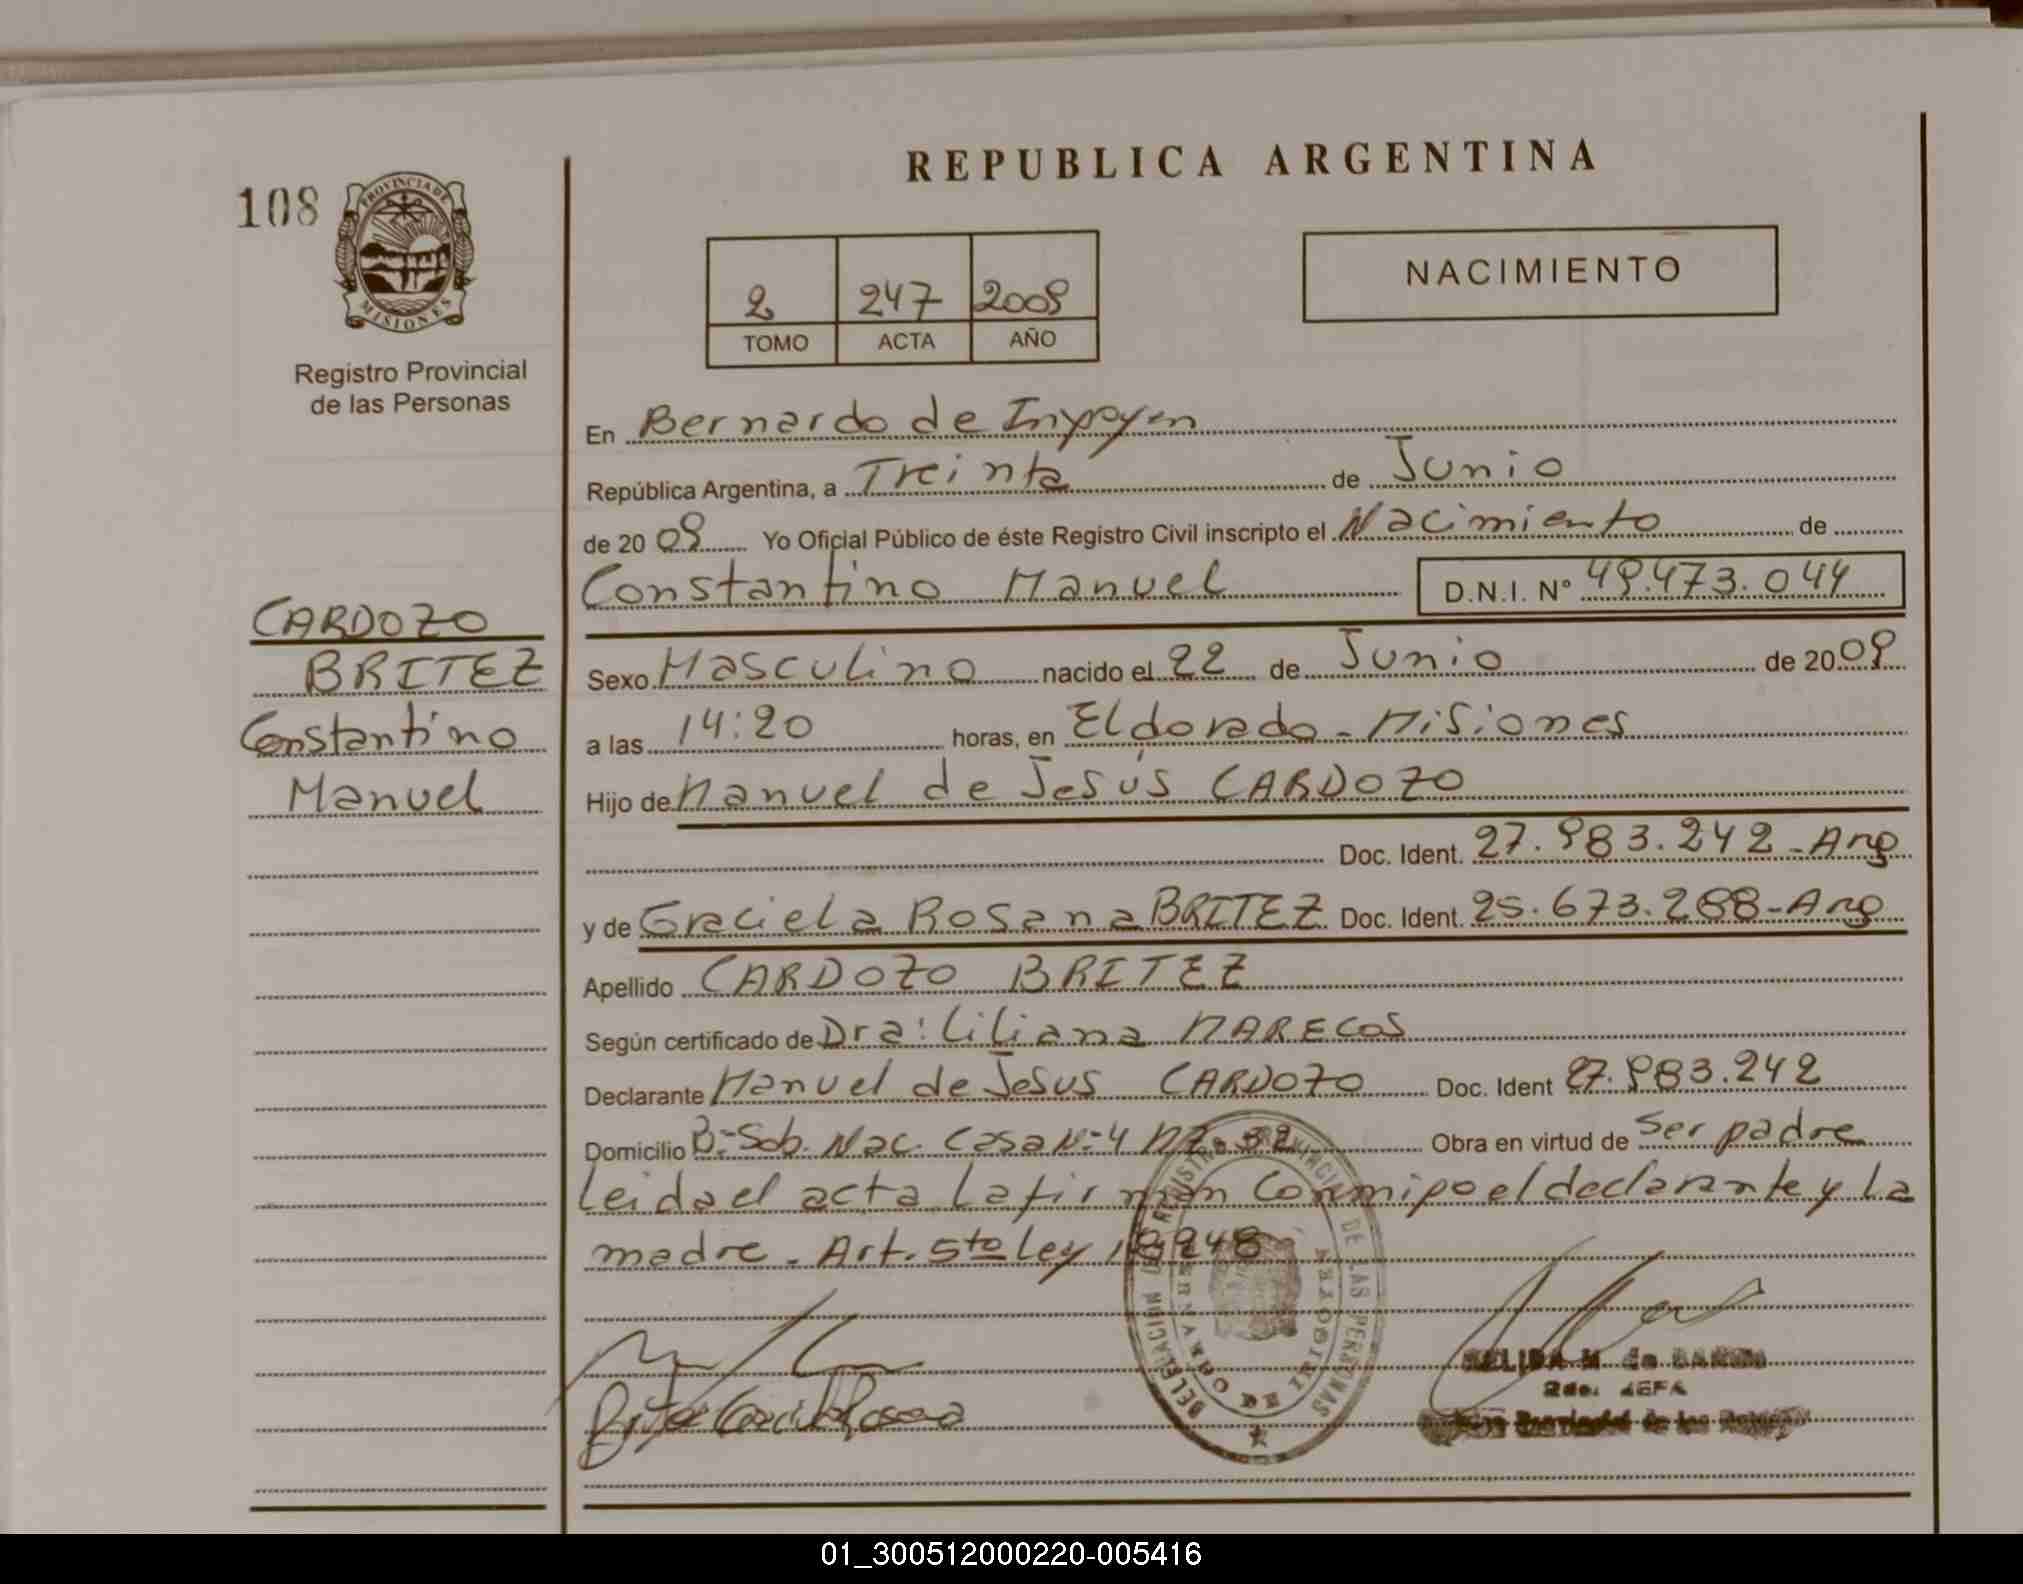 REPUBLICA ARGENTINA
108
PROVINCIA DE
MISIONES
Registro Provincial
de las Personas
2 247 2009
TOMO ACTA AÑO
NACIMIENTO
En Bernardo de Irigoyen
República Argentina, a Treinta de Junio
de 2009 Yo Oficial Público de éste Registro Civil inscripto el Nacimiento de
Constantino Manuel D.N.I. N° 49.473.044
CARDOZO
BRITEZ
Constantino
Manuel
Sexo Masculino nacido el 22 de Junio de 2009
a las 14:20 horas, en Eldorado - Misiones
Hijo de Manuel de Jesús CARDOZO
Doc. Ident. 27.983.242 - Arg
y de Graciela Rosana BRITEZ Doc. Ident. 25.673.288 - Arg
Apellido CARDOZO BRITEZ
Según certificado de Dra: Liliana MARECOS
Declarante Manuel de Jesus CARDOZO Doc. Ident 27.983.242
Domicilio B:- Sob. Nac. Casa N:- 4 MZ. 32 Obra en virtud de Ser padre
Leida el acta La firman Conmigo el declarante y La
madre - Art. 5to Ley 18248
REGISTRO PROVINCIAL DE LAS PERSONAS
2do. JEFA
01_300512000220-005416